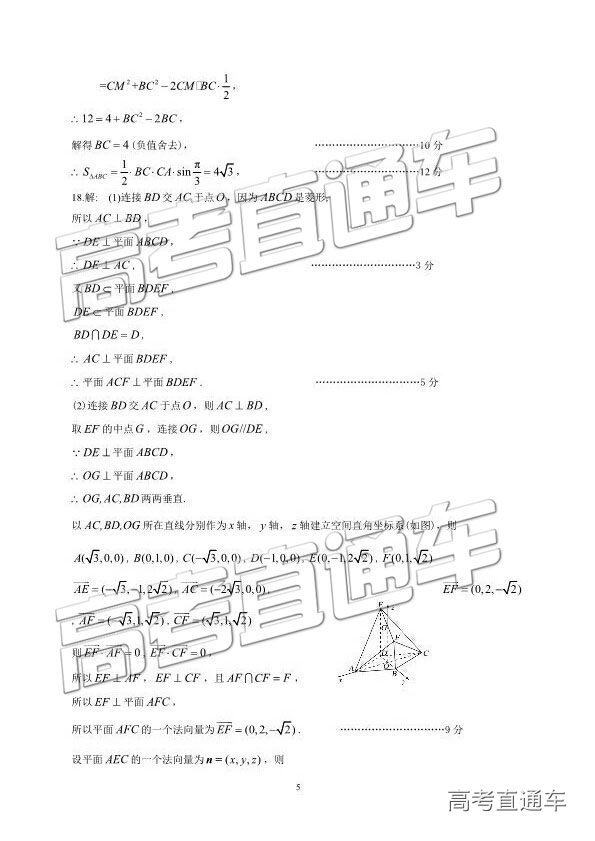 =CM²+BC²－2CM·BC·1/2,
∴12＝4＋BC²－2BC,
解得BC＝4(负值舍去), …………………………10 分
∴ S△ABC＝1/2·BC·CA·sin π/3＝4√3, …………………………12 分
18.解: (1)连接BD交AC于点O, 因为ABCD是菱形,
所以AC⊥BD,
∵DE⊥平面ABCD,
∴DE⊥AC, …………………………3 分
又BD⊂平面BDEF,
DE⊂平面BDEF,
BD⋂DE＝D,
∴ AC⊥平面BDEF,
∴ 平面ACF⊥平面BDEF. …………………………5 分
(2)连接BD交AC于点O, 则AC⊥BD,
取EF的中点G, 连接OG, 则OG//DE,
∵DE⊥平面ABCD,
∴OG⊥平面ABCD,
∴OG,AC,BD两两垂直.
以AC,BD,OG所在直线分别作为x轴, y轴, z轴建立空间直角坐标系(如图), 则
A(√3,0,0), B(0,1,0), C(－√3,0,0), D(－1,0,0), E(0,－1,2√2), F(0,1,√2)
AE＝(－√3,－1,2√2), AC＝(－2√3,0,0), EF＝(0,2,－√2)
, AF＝(－√3,1,√2), CF＝(√3,1,√2)
则EF·AF＝0, EF·CF＝0,
所以EF⊥AF, EF⊥CF, 且AF⋂CF＝F,
所以EF⊥平面AFC,
所以平面AFC的一个法向量为EF＝(0,2,－√2). …………………………9 分
设平面AEC的一个法向量为n＝(x,y,z), 则
E
z
F
C
A
O
B
x
y
5
高考直通车
高考直通车
高考直通车